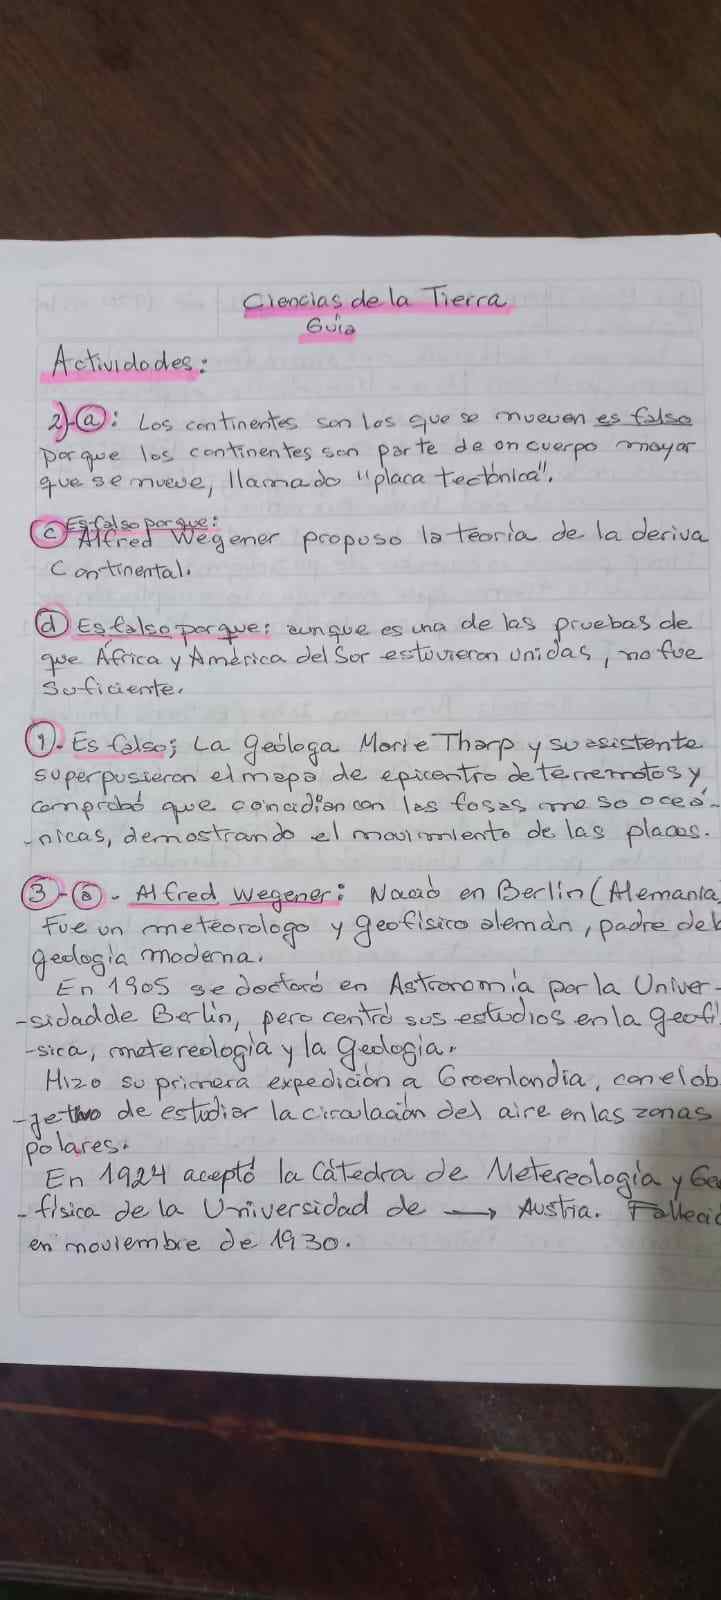 Ciencias de la Tierra
Guía
Actividades:
2)-a: Los continentes son los que se mueven es falso
porque los continentes son parte de un cuerpo mayor
que se mueve, llamado "placa tectónica".
c Es falso porque:
Alfred Wegener propuso la teoría de la deriva
Continental.
d Es falso porque: aunque es una de las pruebas de
que África y América del Sur estuvieron unidas, no fue
suficiente.
1). Es falso; La geóloga Marie Tharp y su asistente
superpusieron el mapa de epicentro de terremotos y
comprobó que coincidian con las fosas meso oceá-
-nicas, demostrando el movimiento de las placas.
3-a. Alfred Wegener: Nació en Berlín (Alemania)
Fue un meteorologo y geofísico alemán, padre de
geología moderna.
En 1905 se doctoró en Astronomía por la Univer-
-sidad de Berlín, pero centró sus estudios en la geofí
-sica, metereología y la geología.
Hizo su primera expedición a Groenlandia, con el ob
-jetivo de estudiar la circulación del aire en las zonas
polares.
En 1924 aceptó la Cátedra de Metereología y Geo
-física de la Universidad de → Austia. Falleció
en noviembre de 1930.